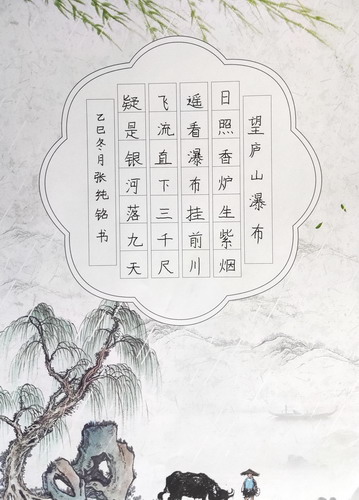 望庐山瀑布
日照香炉生紫烟
遥看瀑布挂前川
飞流直下三千尺
疑是银河落九天
乙巳冬月张纯铭书